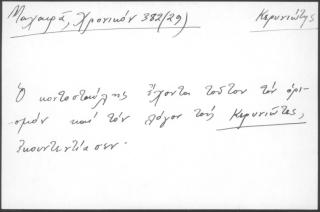 Μαχαιρᾶ, Χρονικόν 382(29) Κερυνιώτης
Ὁ κοντοσταύλης ἔχοντα τοῦτον τὸν ὁρι-
σμὸν καὶ τὸν λόγον τοὺς Κερυνιῶτες,
ἐκουντεντίασεν·